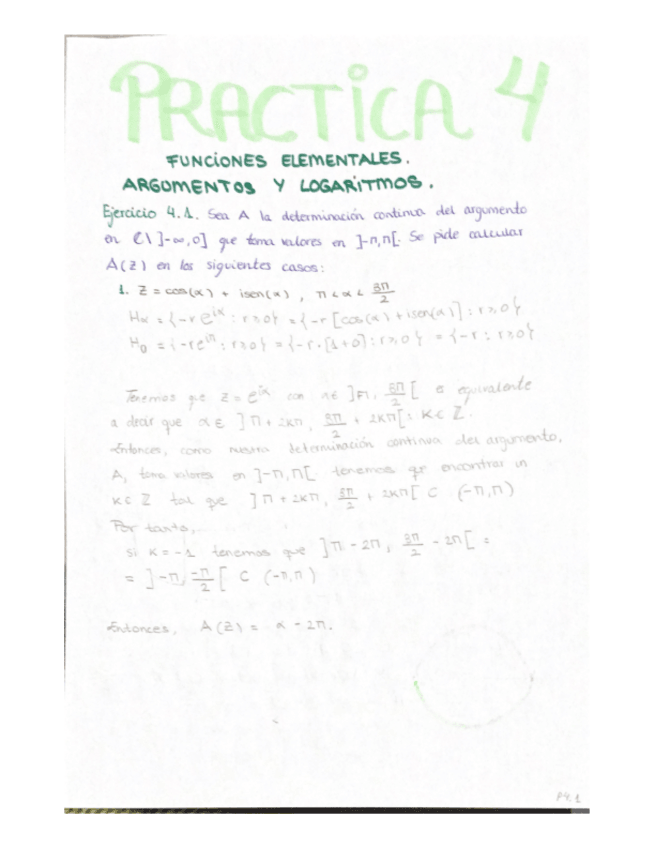 PRACTICA 4
FUNCIONES ELEMENTALES.
ARGUMENTOS Y LOGARITMOS.
Ejercicio 4.1. Sea A la determinación continua del argumento
en ℂ\]-∞,0] que toma valores en ]-π,π[. Se pide calcular
A(z) en los siguientes casos:
1. z = cos(α) + isen(α), π < α < 3π/2
Hα = {-r e^{iα} : r≥0} = {-r [cos(α) + isen(α)] : r≥0}
H₀ = {-re^{iπ} : r≥0} = {-r·[1+0] : r≥0} = {-r : r≥0}
Tenemos que z = e^{iα} con α∈ ]π, 3π/2[ es equivalente
a decir que α∈ ]π+2kπ, 3π/2 + 2kπ[ : k∈ℤ.
Entonces, como nuestra determinación continua del argumento,
A, toma valores en ]-π,π[ tenemos que encontrar un
k∈ℤ tal que ]π+2kπ, 3π/2 + 2kπ[ ⊂ (-π,π)
Por tanto,
si k=-1 tenemos que ]π-2π, 3π/2 - 2π[ =
= ]-π, -π/2[ ⊂ (-π,π)
Entonces, A(z) = α - 2π.
P4.1